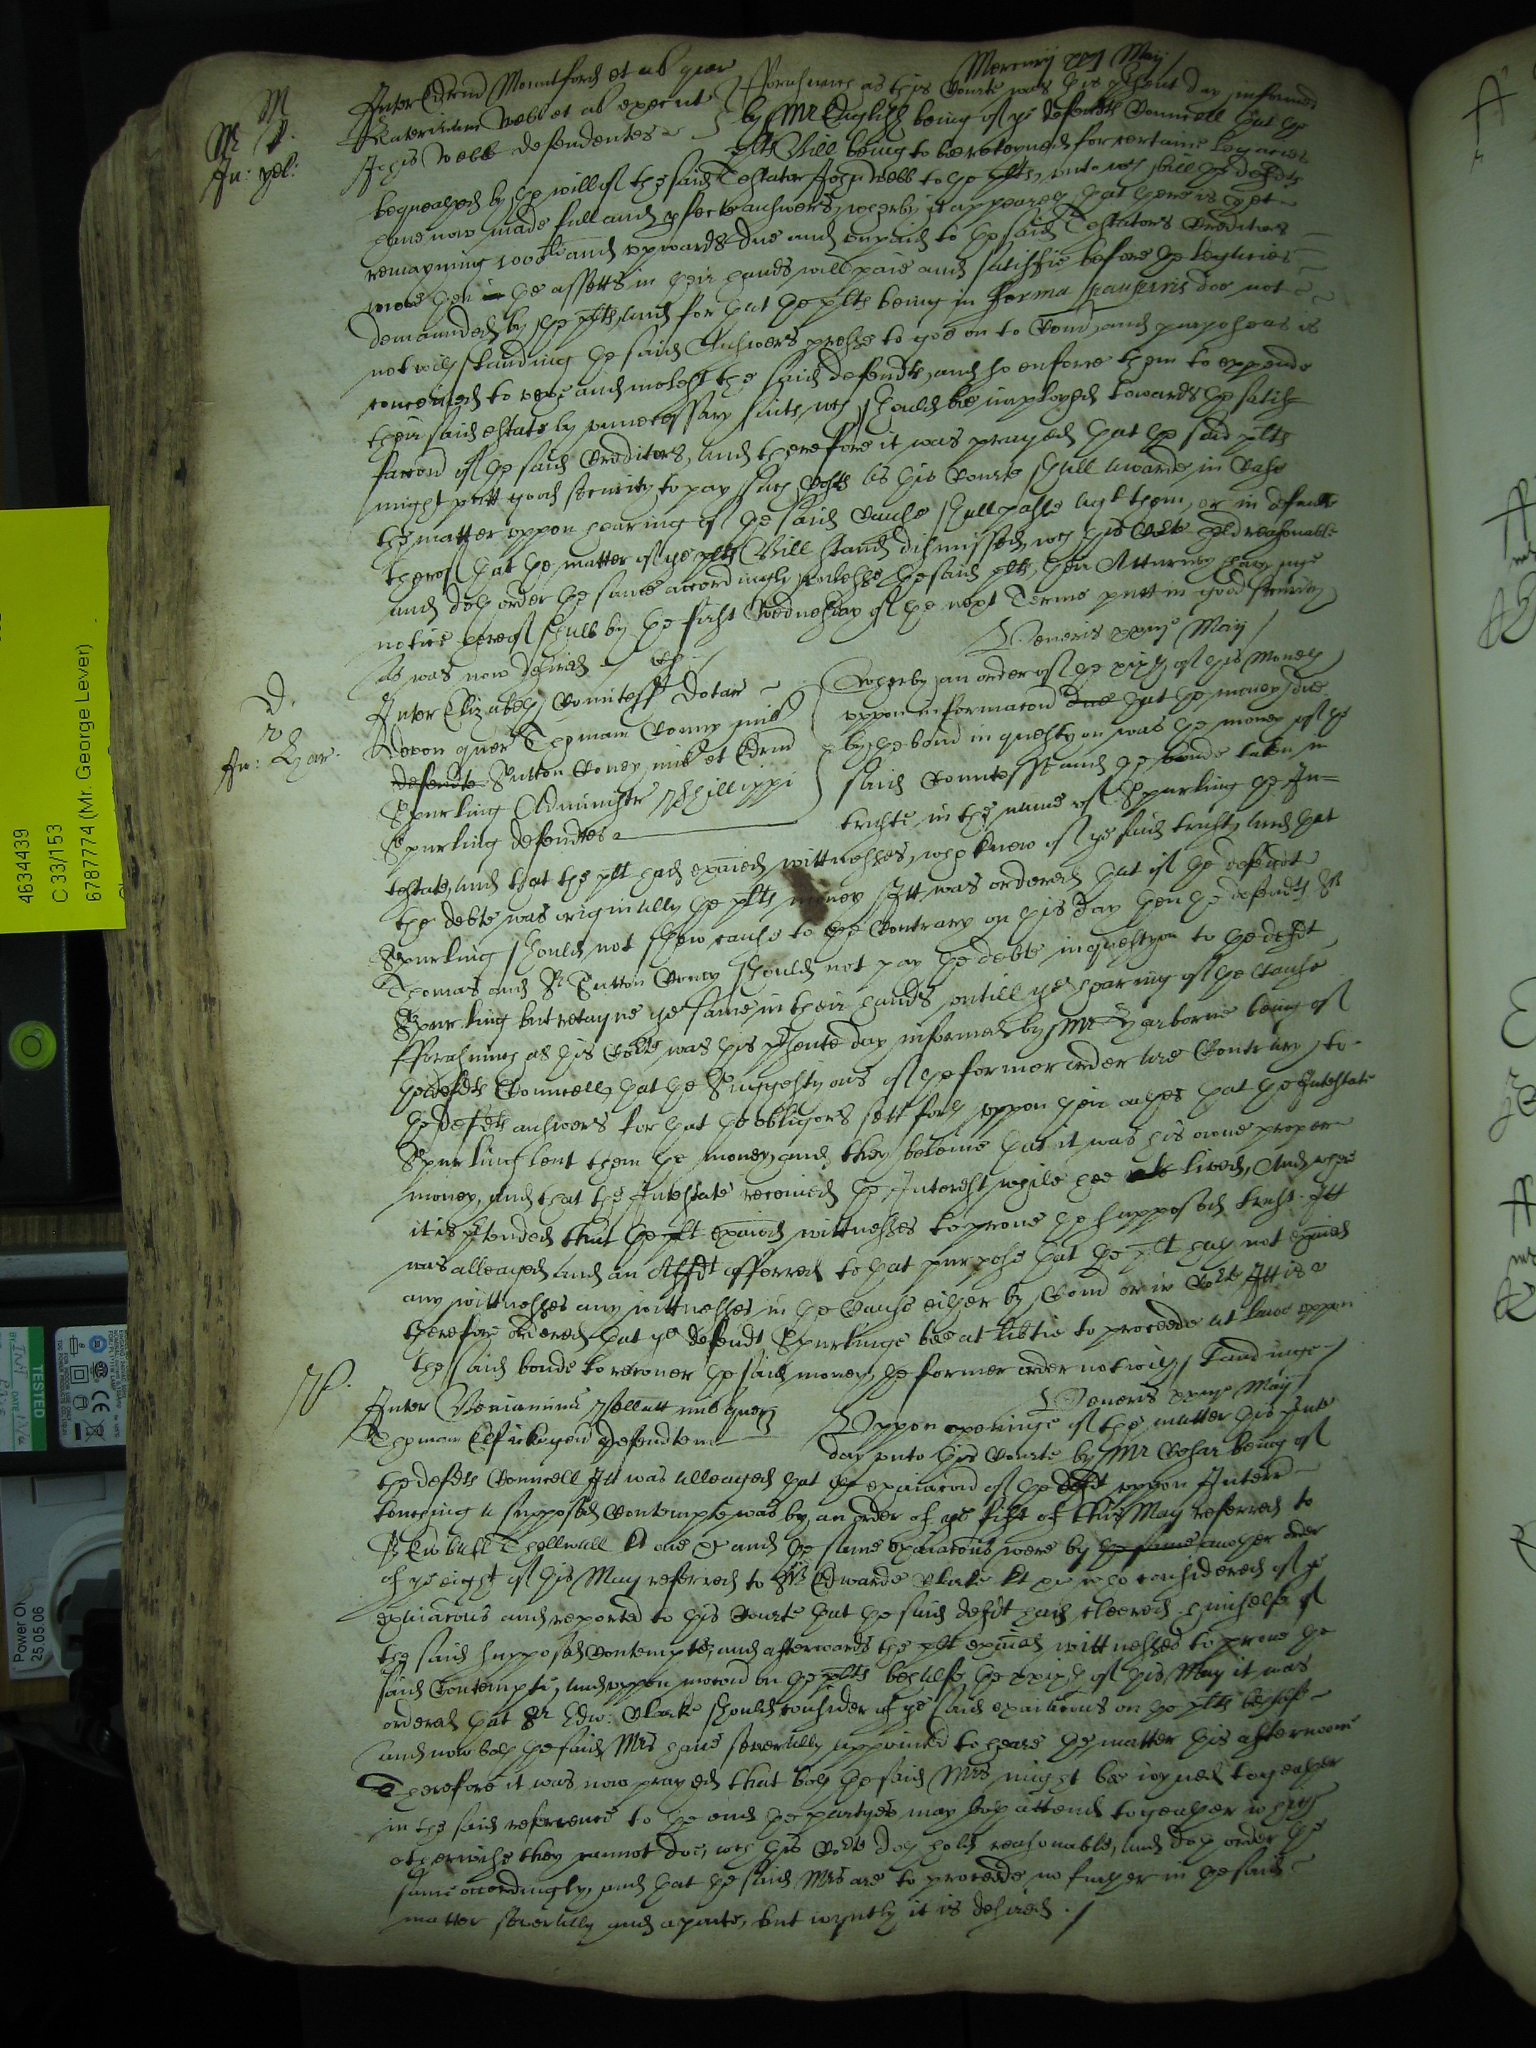 Mercurij xxj Maij
M
Mr P.
An: yel:
Inter Edrum Mountford et al quer
Katerinam Webb et al execut
Johis Webb defendentes
fforasmuch as this Courte was this present day informed
by Mr English being of ye defendts Councell that the
plts Bill being to be releyved for certaine legacies
bequeathed by the will of the said Testator John Webb to the plts, unto wch bill the defdts
have now made full and pfecte answers, wherby it appeareth that there is yet
remayning 1000li and upwards due and unpaid to the said Testators Creditors
more then the assetts in their hands will paie and satisfie before the legacies
demaunded by the plts, and for that the plts being in forma pauperis doe not
notwithstanding the said Answers presse to goe on to Comd, and purpose as is
conceived to vexe and molest the said defendts, and so enforce them to expende
their said estate by unnecessary suits, wch should be imployed towards the satis=
faccon of the said Creditors, and therefore it was prayed that the said plts
might putt good security to pay such Costs as this Courte shall awarde in Case
the matter uppon hearing of the said Cause shall passe agt them, or in default
therof that the matter of the plts Bill stand dismissed, wch this Courte held reasonable
and doth order the same accordingly unlesse the said plts, their Atturney having
notice hereof shall by the first Wednesday of the next Terme putt in good security
as was now desired
Veneris xxiij Maij
D.
r
An: Har.
Inter Elizabeth Comitess Dotar
Devon quer Thomam Coney mil
defendte Sutton Coney mil et Edrum
Spurling Administr Phillippi
Spurling defendtes
Wherby an order of the xixth of this Moneth
uppon informacon due that the money due
by the bond in question was the money of the
said Countesse and the bonde taken in
truste in the name of Spurling the In=
testate, and that the plt hath exaied wittnesses, who knew of the said trust, and that
the debte was originally the plts money Itt was ordered that if the defendt
Spurling should not shew cause to the Contrary on this day then the defendts Sr
Thomas and Sr Sutton Coney should not pay the debte in question to the defdt
Spurling but retayne the same in their hands untill the hearing of the Cause
fforasmuch as this Corte was this presente day informed by Mr Harborne being of
the defdts Councell, that the Suggestyons of the former order are Contrary to
the defdts answers for that the obligors sett forth uppon their oathes that the Intestate
Spurling lent them the money, and they beleive that it was his owne proper
money, and that the Intestate received the Interest while hee lived, And where
it is ptended that the plt exaied wittnesses to prove the supposed trust. Itt
was alleaged and an Affdt offerred to that purpose that the plt hath not exaied
any wittnesses any wittnesses in the Cause either by Comd or in Corte Itt is
therefore ordered that ye defendt Spurlinge bee at libtie to proceede at lawe uppon
the said bonde to recover the said money, the former order notwithstandinge
P.
Veneris xxiij Maij
Inter Beniaminu Pellatt mil quer
Thomam Elfick gen defendtem
Uppon openinge of the matter this
day unto this Courte by Mr being of
the defdts Councell Itt was alleaged that the exaiacon of the defdt uppon Interr
touching a supposed Contempte was by an order of ye first of this May referred to
Sr Eubull Thellwall kt one &c and the same exaiacons were by the same another order
of ye eight of this May referred to Sr Edwarde Clarke kt &c who considered of ye
exaiacons and reported to this Courte that the said defdt hath cleered himselfe of
the said supposed Contempte, and afterwards the plt exaied wittnesses to prove the
said Contempte, and uppon mocon on the plts behalfe the xvith of this May it was
ordered that Sr Edw: Clarke should consider of ye said exaiacons on the plts behalfe
and now both the said Mrs have severally appointed to heare the matter this afternoone
Therefore it was now prayed that both the said Mrs might bee ioyned togeather
in the said reference to the end the partyes may both attend togeather which
otherwise they cannot doe, wch this Corte doth hold reasonable, and doth order the
same accordingly, and that the said Mrs are to proceede no further in the said
matter severally and aparte, but ioyntly it is desired.
4634439
C 33/153
67877774 (Mr. George Lever)
TESTED
Power
25.05.06